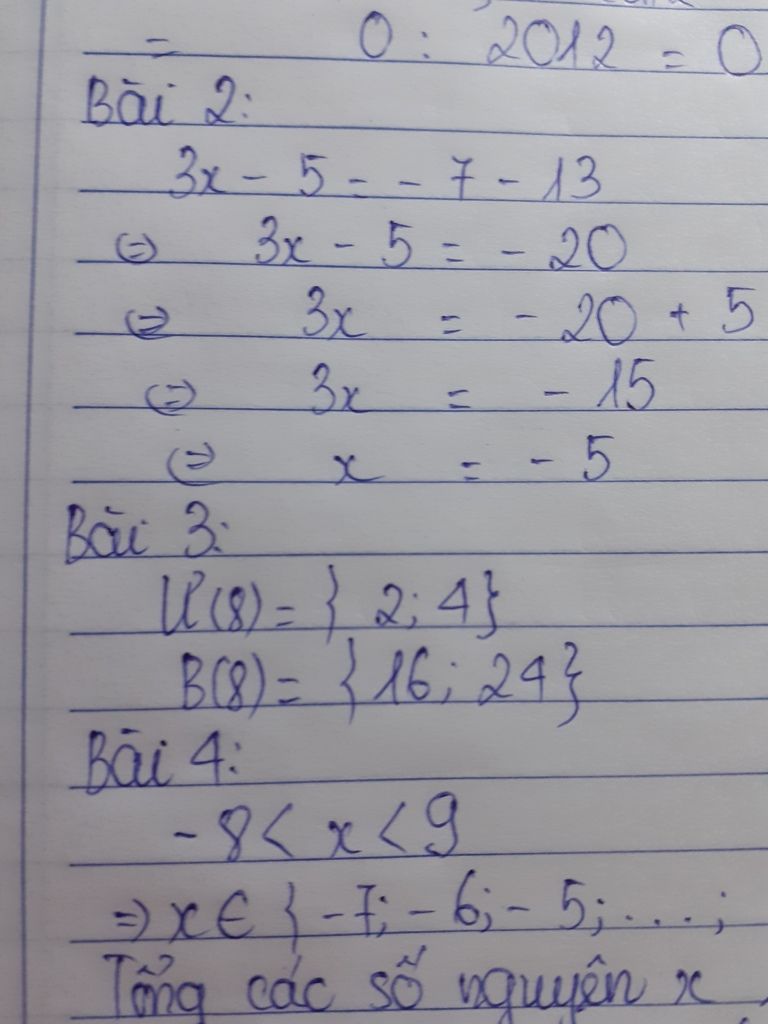 = 0 : 2012 = 0
Bài 2:
3x - 5 = - 7 - 13
⇔ 3x - 5 = - 20
⇔ 3x = - 20 + 5
⇔ 3x = - 15
⇔ x = - 5
Bài 3:
Ư(8) = { 2; 4}
B(8) = { 16; 24}
Bài 4:
- 8 < x < 9
⇒ x ∈ { -7; - 6; - 5; ....;
Tổng các số nguyên x